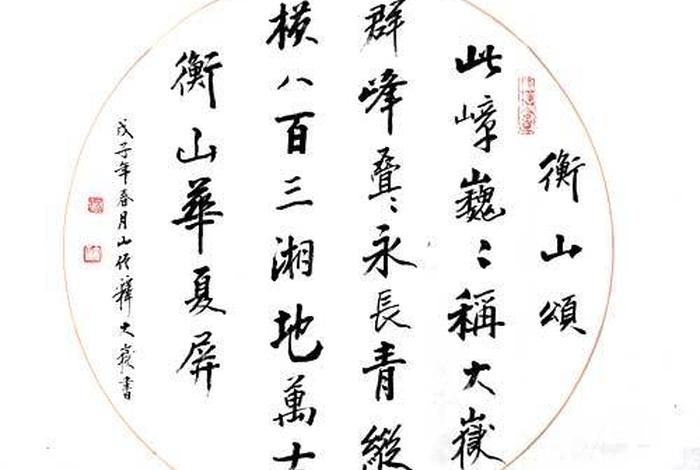 衡山頌
此嶂巍〻稱大嶽
群峰疊〻永長青縱
横八百三湘地萬
衡山華夏屏
戊子年春月山僧釋大嶽書